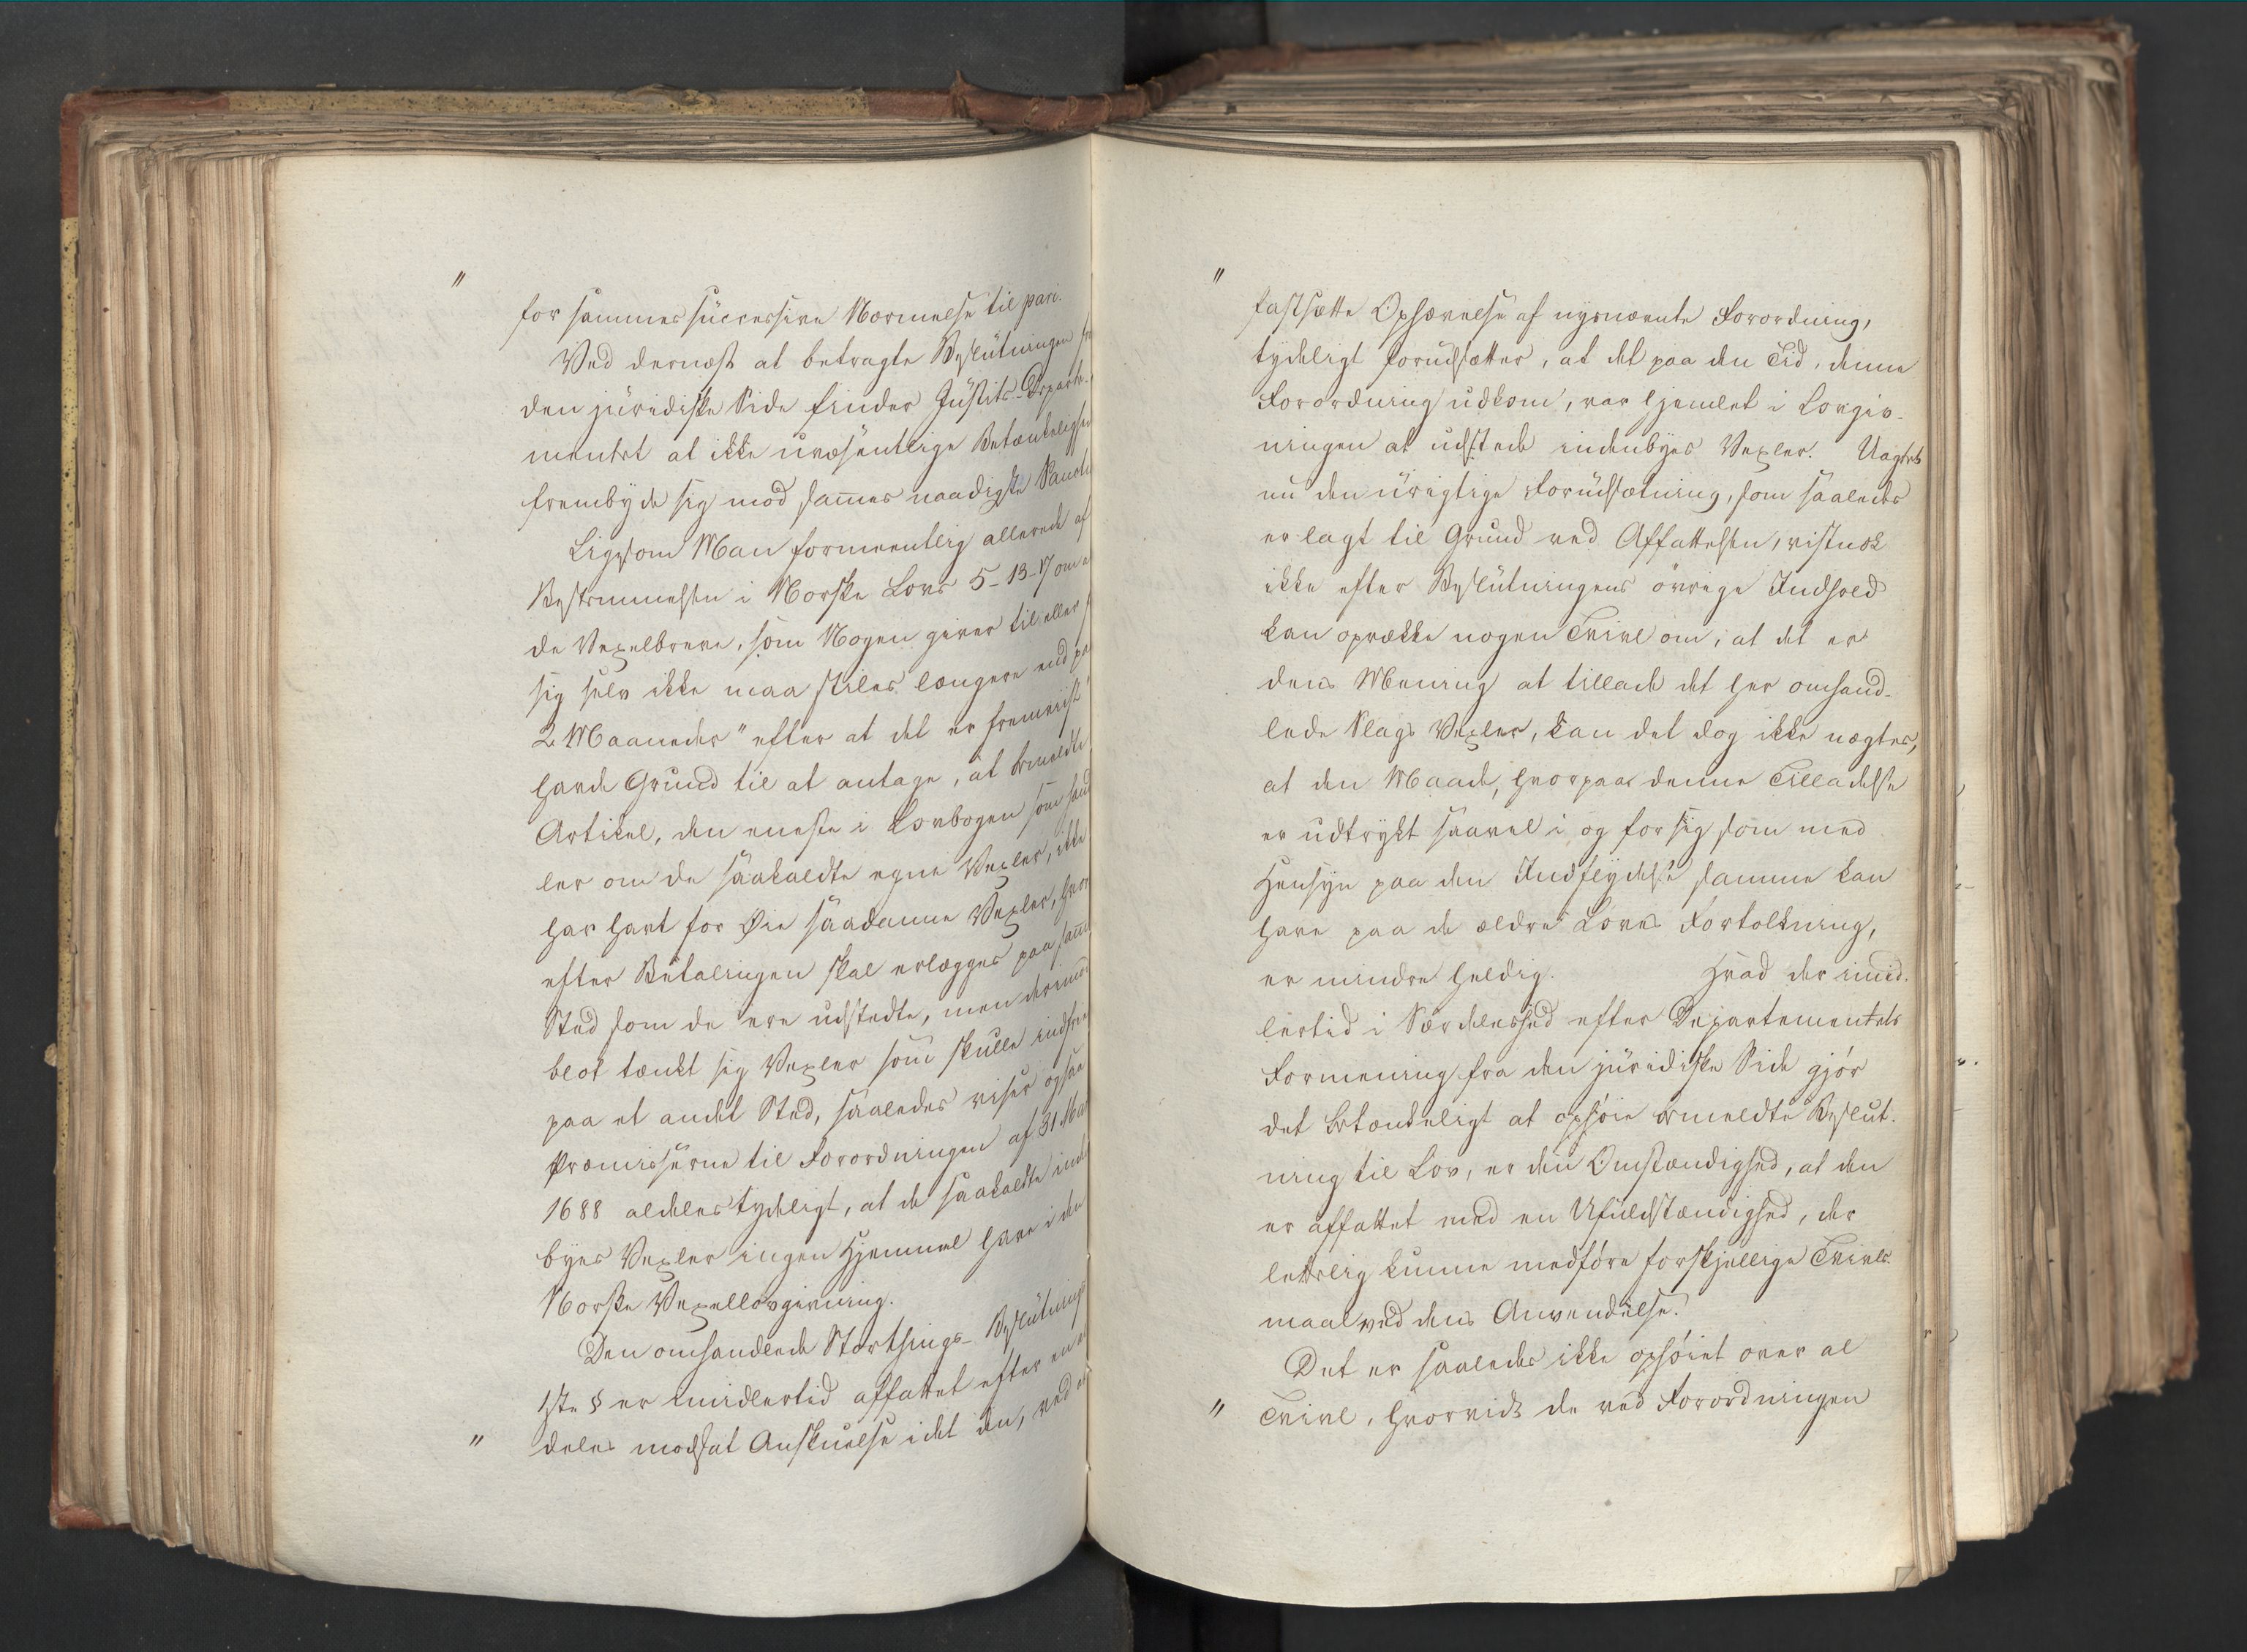 "
for sammes süccessive Nærmelse til pari.
Ved dernæst at betragte Beslütningen
den jüridiske Side finder Jüstits-Departe-
mentet at ikke üvæsentlige Betænkelighed
frembyde sig mod sam̅es naadigste Sancti
Ligesom Man formeentlig allerede af
Bestemmelsen i Norske Lovs 5-13-17 om
de Vexelbreve, som Nogen giver til eller
sig selv ikke maa stiles længere end pa
2 Maaneder" efter at det er fremviist
havde Grund til at antage, at bemeldte
Artikel, den eneste i Lovbogen som hand
ler om de saakaldte egne Vexler, ikke
har havt for Øie saadanne Vexler, hvor
efter Betalingen skal erlægges paa sam̅e
Sted som de ere udstedte, men derimod
blot tænkt sig Vexler som skulle indfrie
paa et andet Sted, saaledes viser ogsaa
Præmisserne til Forordningen af 31 Mar
1688 aldeles tydeligt, at de saakaldte inden
byes Vexler ingen Hjemmel have i den
Norske Vexellovgivning.
Den omhandlede Storthings-Beslütnings
1ste § er imidlertid affattet efter en
" deles modsat Anskuelse idet den, ved
"
fastsætte Ophævelse af nysnævnte Forordning,
tydeligt forudsætter, at det paa den Tid, denne
Forordning udkom, var hjemlet i Lovgiv-
ningen at udstede indenbyes Vexler. Uagtet
nu den ürigtige Forüdsætning, som saaledes
er lagt til Grund ved Affattelsen, vistnok
ikke efter Beslütningens övrige Indhold
kan opvække nogen Tvivl om, at det er
dens Mening at tillade det her omhand-
lede Slags Vexler, kan det dog ikke nægtes,
at den Maade, hvorpaa denne Tilladelse
er udtrykt saavel i og for sig som med
Hensyn paa den Indflydelse samme kan
have paa de ældre Loves Fortolkning,
er mindre heldig. Hvad der imid-
lertid i Særdeleshed efter Departementets
Formening fra den jüridiske Side gjör
det betænkeligt at ophöie bemeldte Beslut-
ning til Lov, er den Omstændighed, at den
er affattet med en Ufüldstændighed, der
letteligen kunne medföre forskjellige Tvivls-
maal ved dens Anvendelse.
Det er saaledes ikke ophöiet over al
" Tvivl, hvorvidt de ved Forordningen